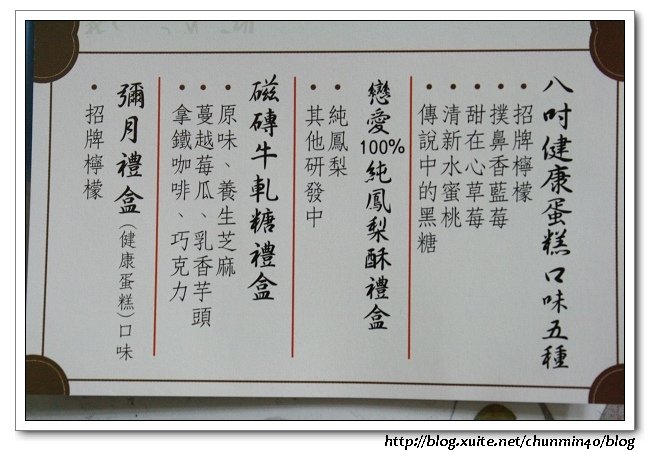 八吋健康蛋糕口味五種
• 招牌檸檬
• 撲鼻香藍莓
• 甜在心草莓
• 清新水蜜桃
• 傳說中的黑糖
戀愛100%純鳳梨酥禮盒
• 純鳳梨
• 其他研發中
磁磚牛軋糖禮盒
• 原味、養生芝麻
• 蔓越莓瓜、乳香芋頭
• 拿鐵咖啡、巧克力
彌月禮盒(健康蛋糕)口味
• 招牌檸檬
http://blog.xuite.net/chunmin40/blog